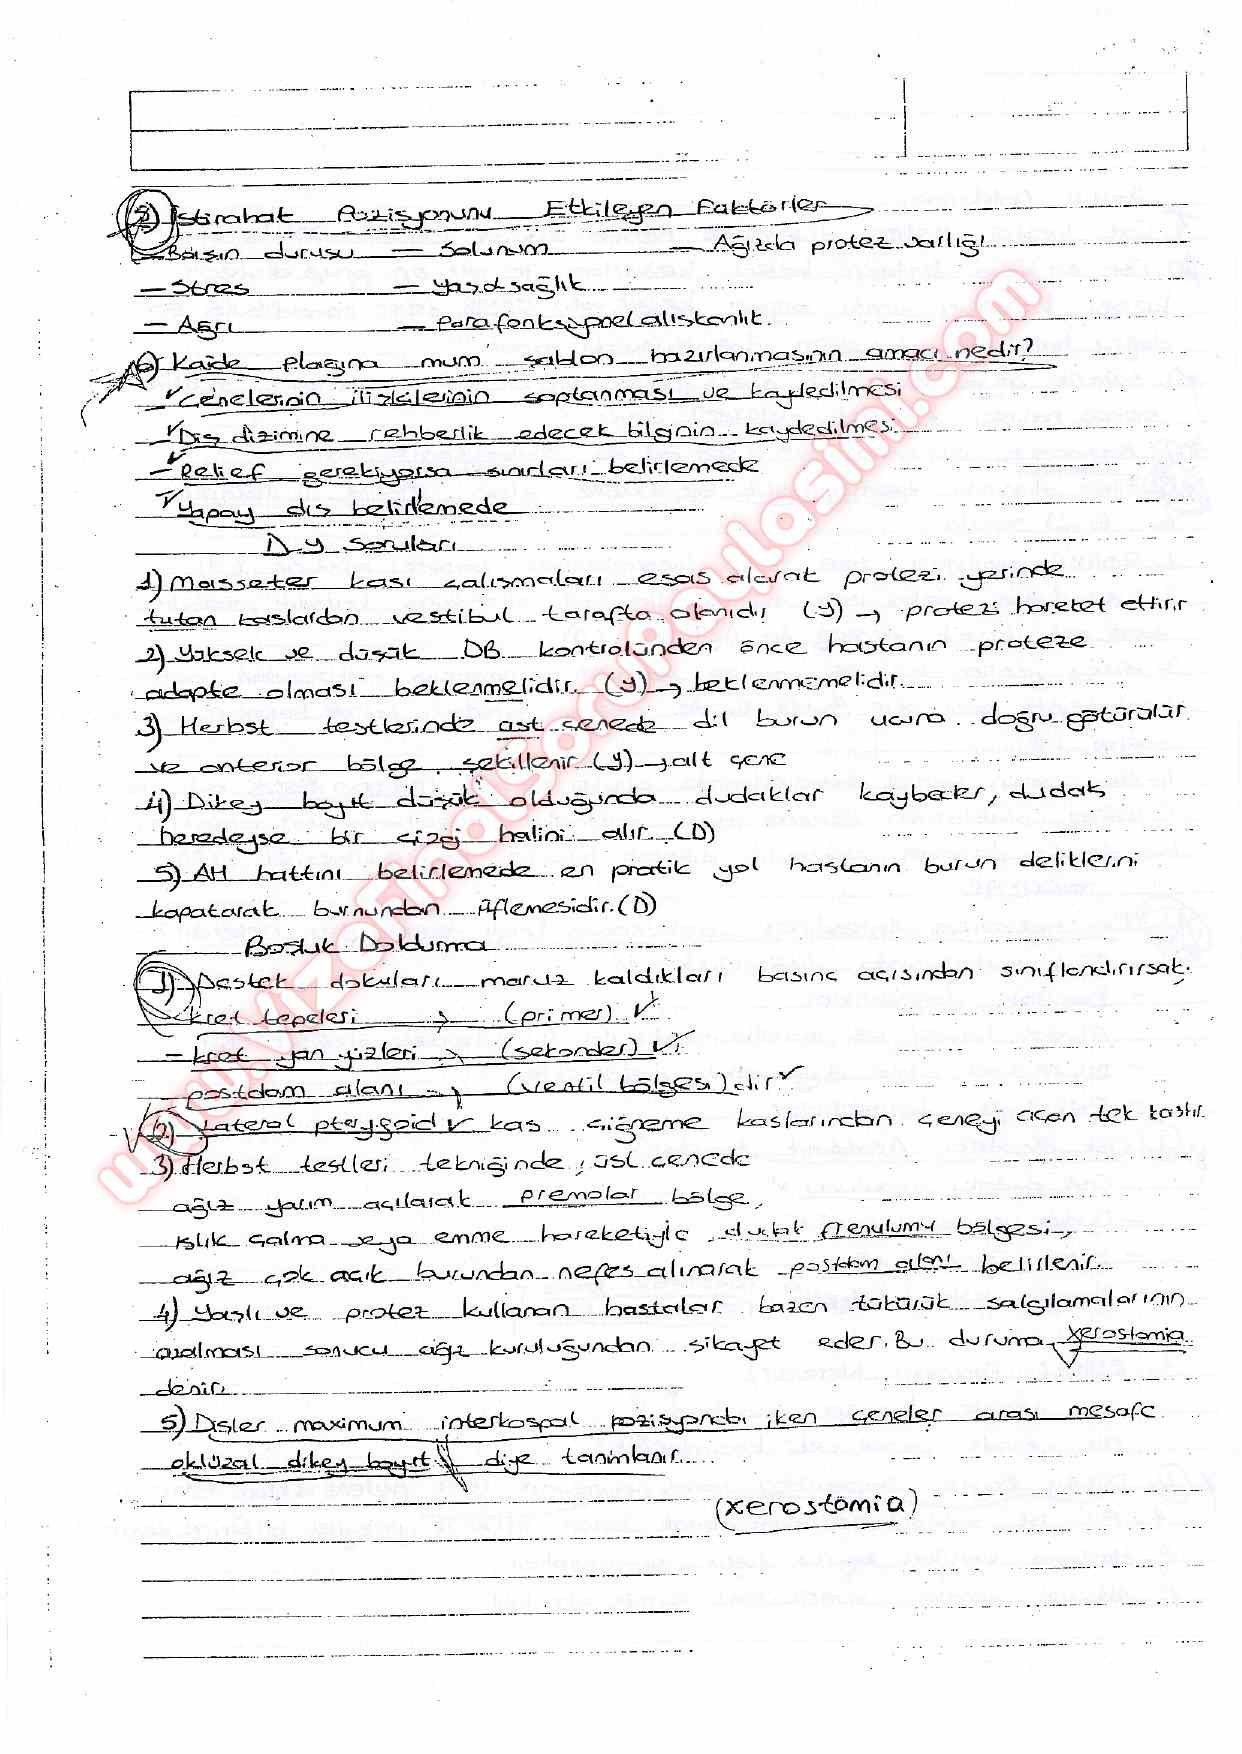 5) İstirahat Pozisyonunu Etkileyen Faktörler
- Başın durusu - Solunum - Ağızda protez varlığı
- Stres - Yaş & sağlık
- Ağrı - Parafonksiyonel alıskanlık.
6) Kaide plağına mum şablon hazırlanmasının amacı nedir?
✓ Çenelerinin ilişkilerinin saptanması ve kaydedilmesi
✓ Diş dizimine rehberlik edecek bilginin kaydedilmesi
- Relief gerekiyorsa sınırları belirlemede
✓ Yapay dis belirlemede
D Y soruları
1) Masseter kası çalısmaları esas olarak protezi yerinde
tutan kaslardan vestibul tarafta olanıdır (Y) → protezi hareket ettirir
2) Yüksek ve düşük DB kontrolünden önce hastanın proteze
adapte olması beklenmelidir. (Y) → beklenmemelidir.
3) Herbst testlerinde üst çenede dil burun ucuna doğru götürülür
ve anterior bölge şekillenir (Y) → alt çene
4) Dikey boyut düşük olduğunda dudaklar kaybeder, dudak
neredeyse bir çizgi halini alır. (D)
5) AH hattını belirlemede en pratik yol hastanın burun deliklerini
kapatarak burnundan üflemesidir. (D)
Bosluk Doldurma
1) Destek dokuları maruz kaldıkları basınç açısından sınıflandırırsak;
- kret tepeleri → (primer) ✓
- kret yan yüzleri → (sekonder) ✓
postdam alanı → (ventil bölgesi) dir ✓
2) Lateral pterygoid ✓ kas çiğneme kaslarından çeneyi açan tek kastır.
3) Herbst testleri tekniğinde, üst çenede
ağız yarım açılarak premolar bölge,
ıslık çalma veya emme hareketiyle dudak frenulumu bölgesi,
ağız çok açık burundan nefes alınarak postdam alanı belirlenir.
4) Yaşlı ve protez kullanan hastalar bazen tükürük salgılamalarının
azalması sonucu ağız kuruluğundan sikayet eder. Bu duruma xerostomia
denir.
5) Dişler maximum interkuspal pozisyonda iken çeneler arası mesafe
oklüzal dikey boyut diye tanımlanır.
(xerostomia)
www.vizefinalsorupaylasimi.com